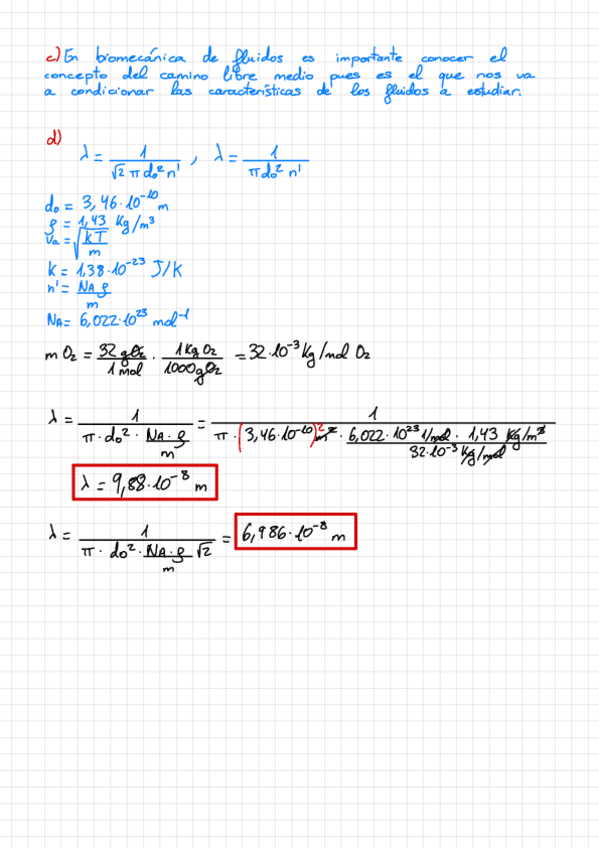 c) En biomecánica de fluidos es importante conocer el
concepto del camino libre medio pues es el que nos va
a condicionar las características de los fluidos a estudiar.
d)
λ = 1/(√2 π do² n') , λ = 1/(π do² n')
do = 3,46·10⁻¹⁰ m
ρ = 1,43 Kg/m³
va = √(kT/m)
k = 1,38·10⁻²³ J/K
n' = NA ρ/m
NA = 6,022·10²³ mol⁻¹
m O₂ = 32 g O₂/1 mol · 1 Kg O₂/1000 g O₂ = 32·10⁻³ Kg/mol O₂
λ = 1/(π · do² · NA·ρ/m) = 1/(π · (3,46·10⁻¹⁰)² m² · 6,022·10²³ 1/mol · 1,43 Kg/m³/32·10⁻³ Kg/mol)
λ = 9,88·10⁻⁸ m
λ = 1/(π · do² · NA·ρ/m √2) = 6,986·10⁻⁸ m